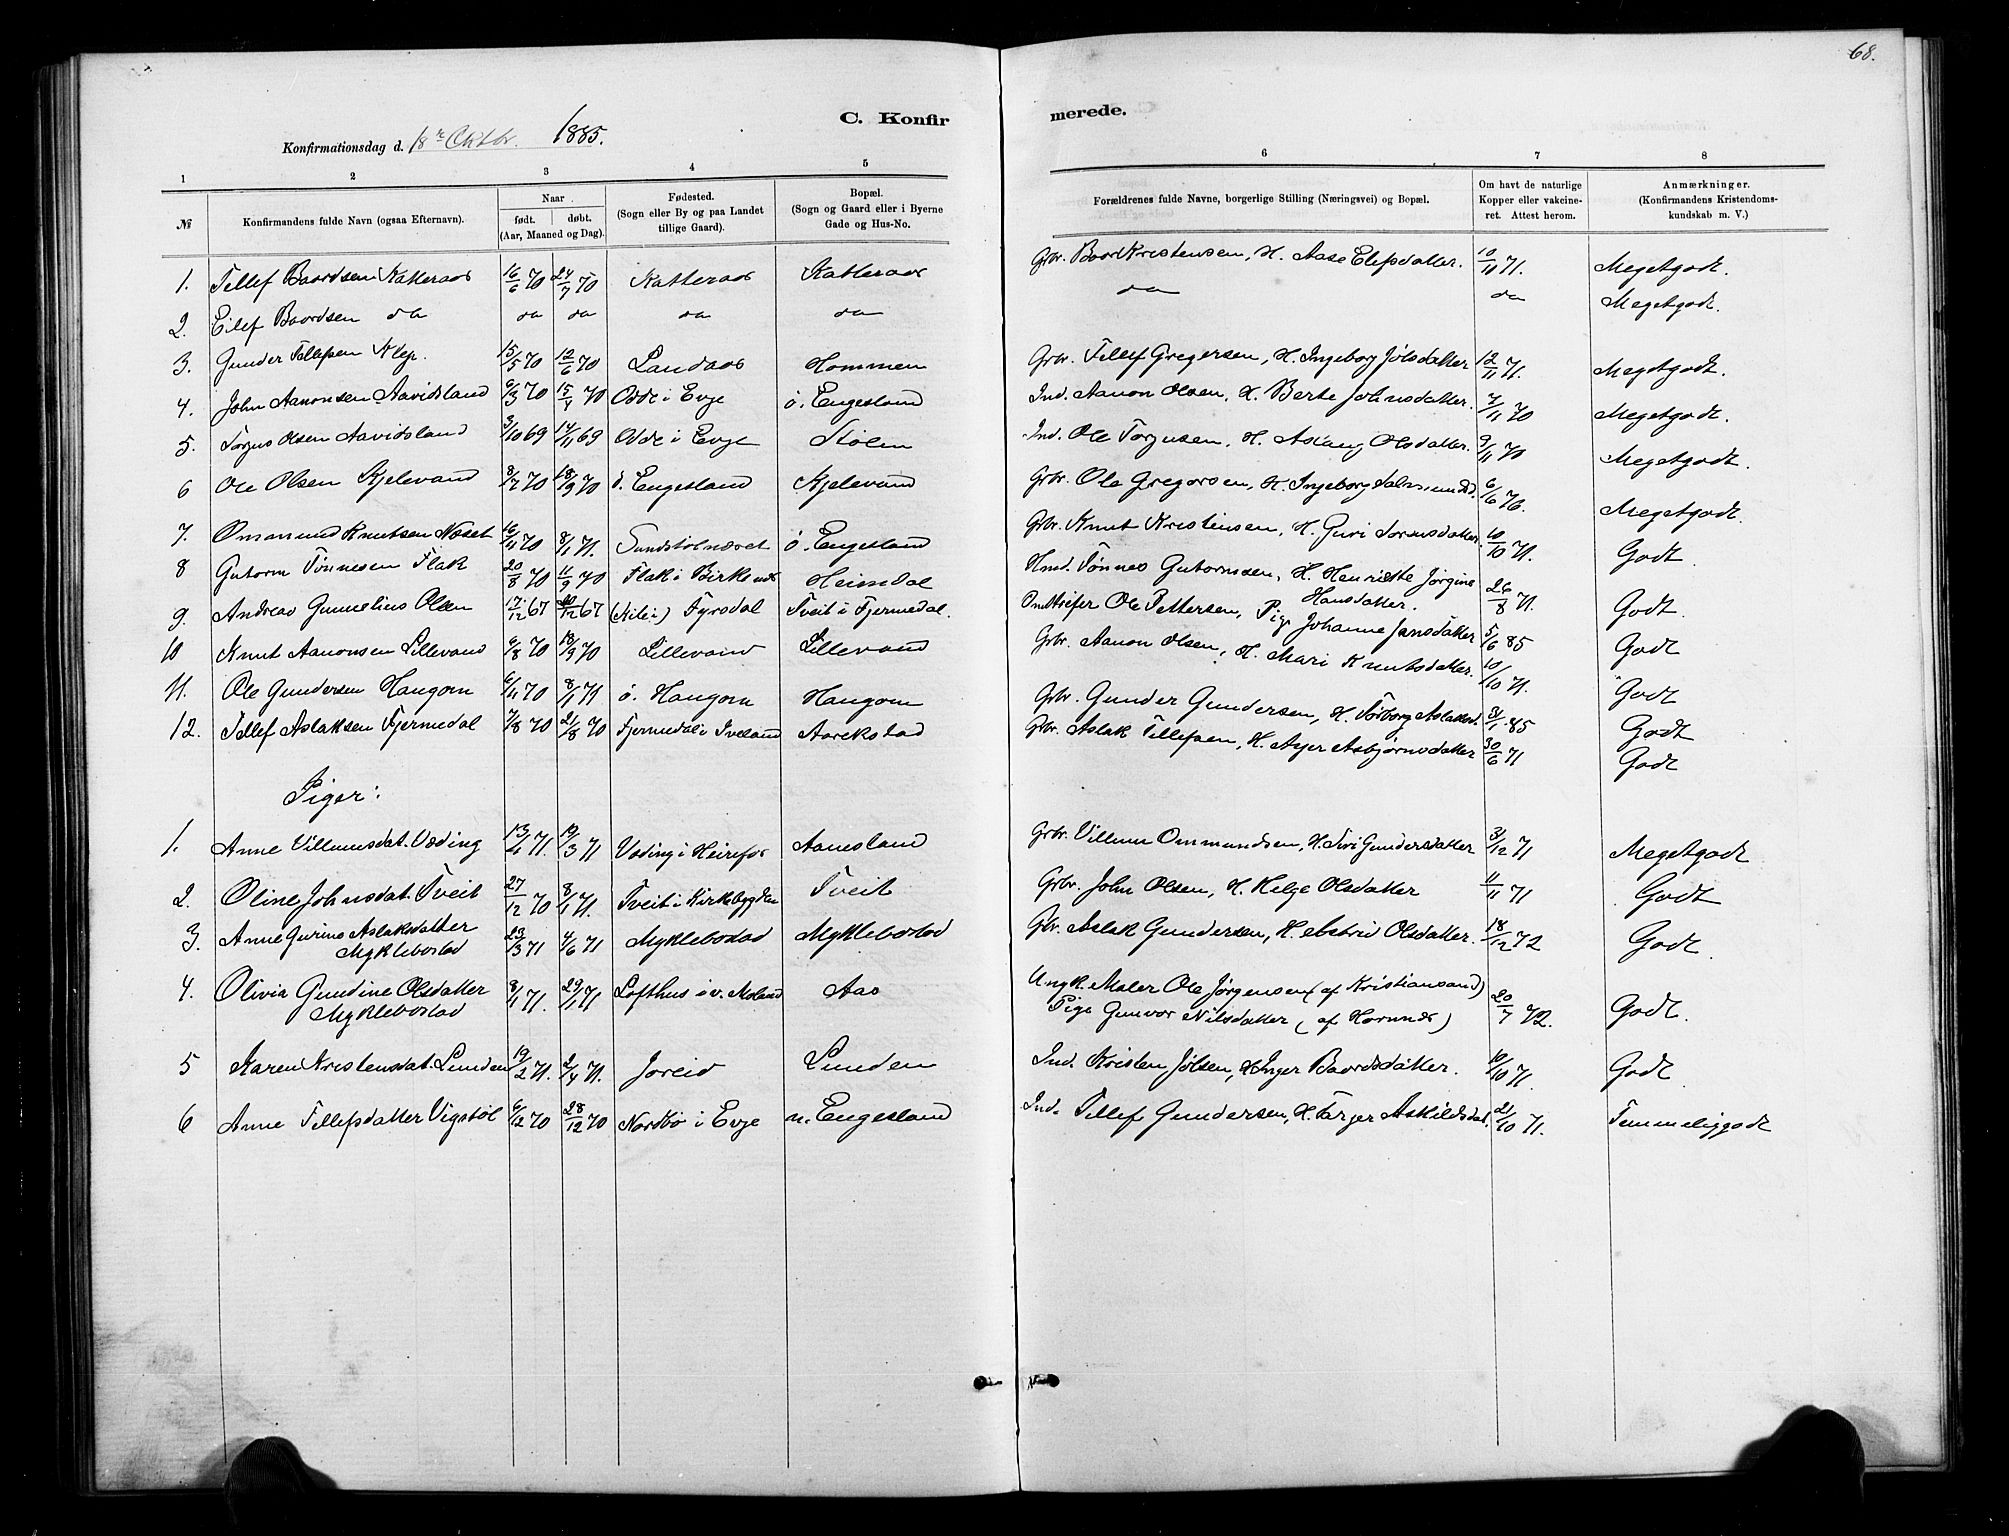 68.
C. Konfirmerede.
Konfirmationsdag d. 18r Oktbr. 1885.
1 2 3 4 5 6 7 8
№ Konfirmandens fulde Navn (ogsaa Efternavn). Naar født. døbt. (Aar, Maaned og Dag). Fødested. (Sogn eller By og paa Landet tillige Gaard). Bopæl. (Sogn og Gaard eller i Byerne Gade og Hus-No. Forældrenes fulde Navne, borgerlige Stilling (Næringsvei) og Bopæl. Om havt de naturlige Kopper eller vakcineret. Attest herom. Anmærkninger. (Konfirmandens Kristendomskundskab m. V.)
1. Tellef Baardsen Katteraas 16/6 70 24/7 70 Katteraas Katteraas Grbr. Baard Kristensen, H. Aase Elefsdatter. 10/11 71. Megetgodt.
2. Eilef Baardsen do do do do do do do Megetgodt.
3. Gunder Tellefsen Klep. 15/5 70 12/6 70 Landaas Hommen Grbr. Tellef Gregersen, H. Ingeborg Jølsdatter 12/11 71. Megetgodt.
4. John Aanonsen Aavidsland 6/3 70 15/4 70 Odde i Evje ö. Engesland Ind. Aanon Olsen, H. Berte Johnsdatter. 7/11 70 Megetgodt.
5. Torjus Olsen Aavidsland 3/10 69 14/11 69 Odde i Evje Stölen Ind. Ole Torjusen, H. Aslaug Olsdatter. 9/11 70 Megetgodt.
6 Ole Olsen Kjelevand 8/7 70 18/9 70 ö. Engesland Kjelevand Grbr. Ole Gregersen, H. Ingeborg 6/6 76. Megetgodt.
7. Ommund Knutsen Næset 16/11 70 8/1 71. Sundstölnæset ö. Engesland Grbr. Knut Kristensen, H. Guri 10/10 71. Godt
8 Gutorm Tönnesen Flak 20/8 70 11/9 70 Flak i Birkenæs Heimdal Hmd. Tönnes Gutormsen, H. Henriette Jörgine Hansdatter. 26/8 71. Godt.
9. Andreas Gunnelius Olsen 17/12 67 20/12 67 Fyrsdal Tveit i Fjermedal. Ole Pettersen, Pige Johanne Jansdatter 5/6 85 Godt
10 Knut Aanonsen Lillevand 6/8 70 18/9 70 Lillevand Lillevand Grbr. Aanon Olsen, H. Mari Knutsdatter. 10/10 71. Godt
11. Ole Gundersen Haugom 6/11 70 8/1 71 ö. Haugom Haugom Grbr. Gunder Gundersen, H. Torborg Aslaksd. 31/1 85 Godt
12. Tellef Aslaksen Fjermedal 7/8 70 21/8 70 Fjermedal i Iveland Aareksdad Grbr. Aslak Tellefsen, H. Asbjörnsdatter 30/6 71 Godt
Piger:
1. Anne Villumsdat. Væding 71. 19/3 71 Væding i Heirefos Aanesland Grbr. Villum Ommundsen, H. Siri Gundersdatter 3/12 71 Megetgodt
2. Oline Johnsdat. Tveit 27/12 70 8/1 71. Tveit i Kirkebygden Tveit Grbr. John Olsen, H. Helge Olsdatter 11/11 71 Godt
3. Anne Gurine Aslaksdatter Myklebostad 23/3 71 4/6 71 Myklebostad Myklebostad Gbr. Aslak Gundersen, H. Astrid Olsdatter. 18/12 72 Godt.
4. Olivia Gundine Olsdatter Myklebostad 8/1 71. 29/1 71 Lofthus i v. Moland Aas Ungk. Maler Ole Jörgensen (af Kristiansand) Pige Gunvor Nilsdatter (af Hornnæs) 20/7 72. Godt.
5 Karen Kristensdat. Lunden 19/2 71. 2/4 71. Joreid Lunden Ind. Kristen Jölsen, H. Inger Baardsdatter. 10/10 71. Godt.
6 Anne Tellefsdatter Vigstöl 6/12 70 28/12 70 Nordbö i Evje n. Engesland Ind. Tellef Gundersen, H. Targer Askildsdat. 21/10 71. Temmeliggodt